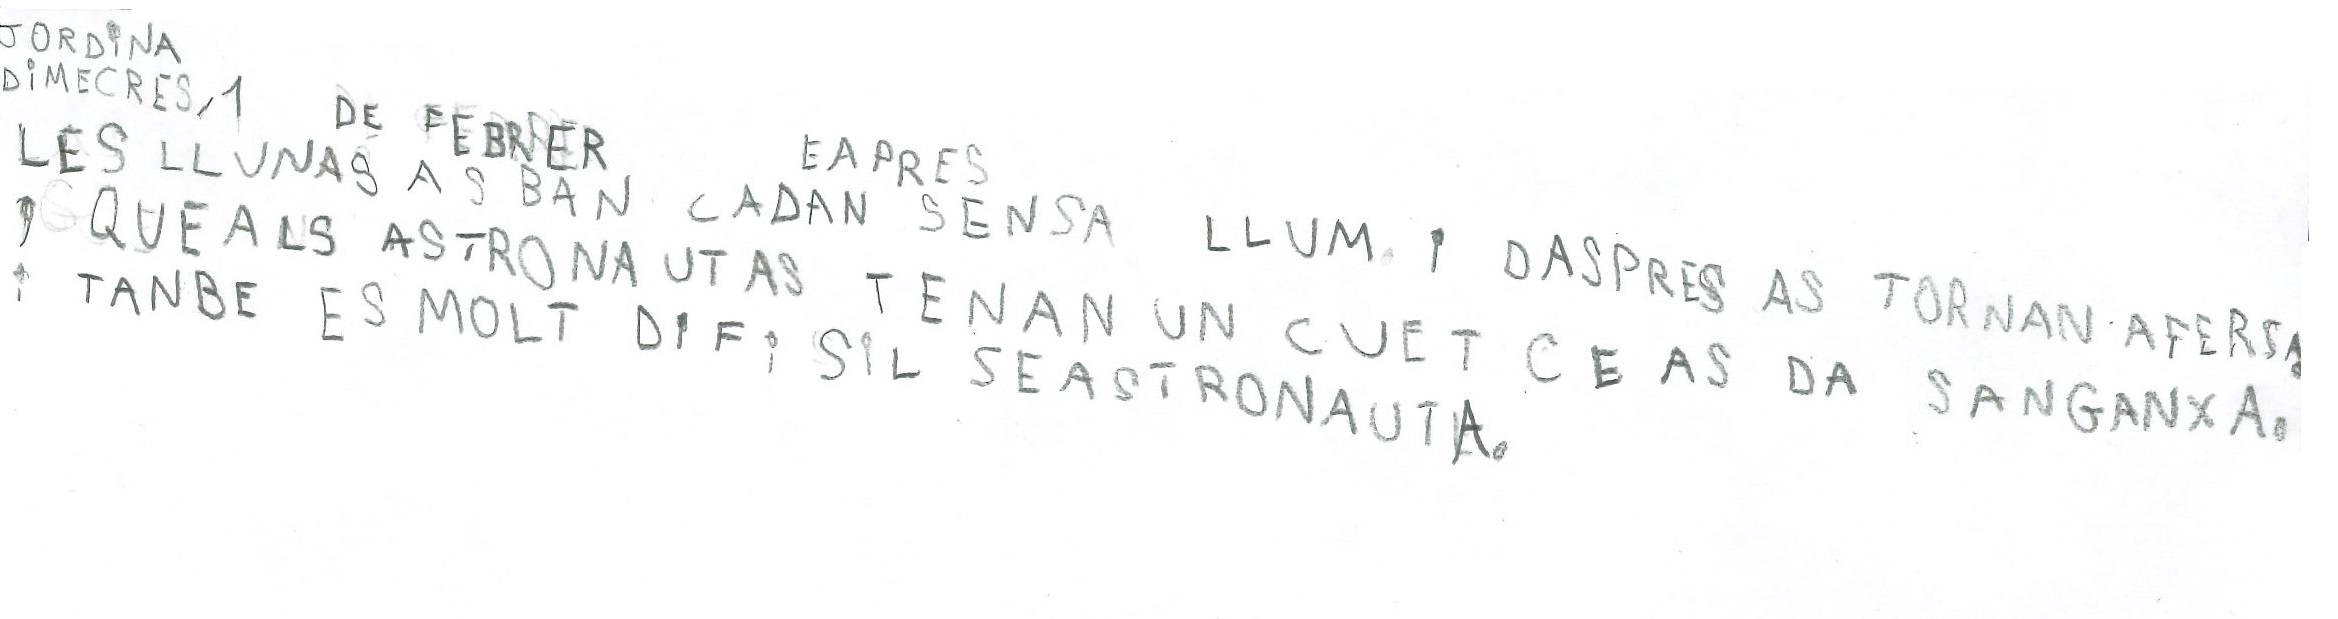 JORDiNA
DiMECRES,1 DE FEBRER EAPRES
LES LLUNAS AS BAN CADAN SENSA LLUM. i DASPRES AS TORNAN.AFERSA
i QUE ALS ASTRONAUTAS TENAN UN CUET CE AS DA SANGANXA.
i TANBE ES MOLT DIFiSiL SEASTRONAUTA.